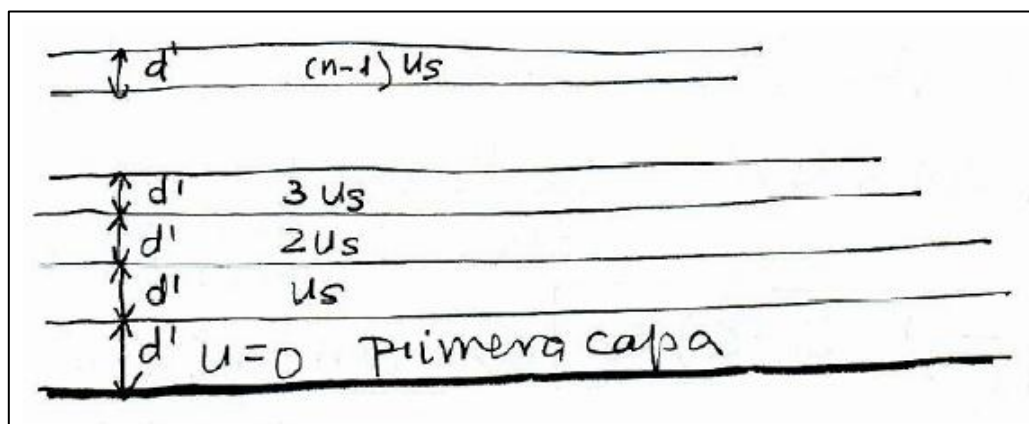 d' (n-1) Us
d' 3 Us
d' 2Us
d' Us
d' U=0 primera capa